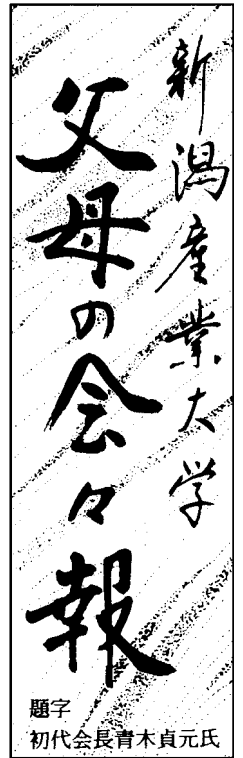 新潟産業大学
父母の会々報
題字
初代会長青木貞元氏